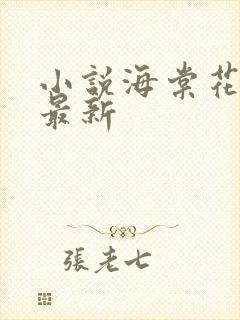 小說海棠花
最新
張老七